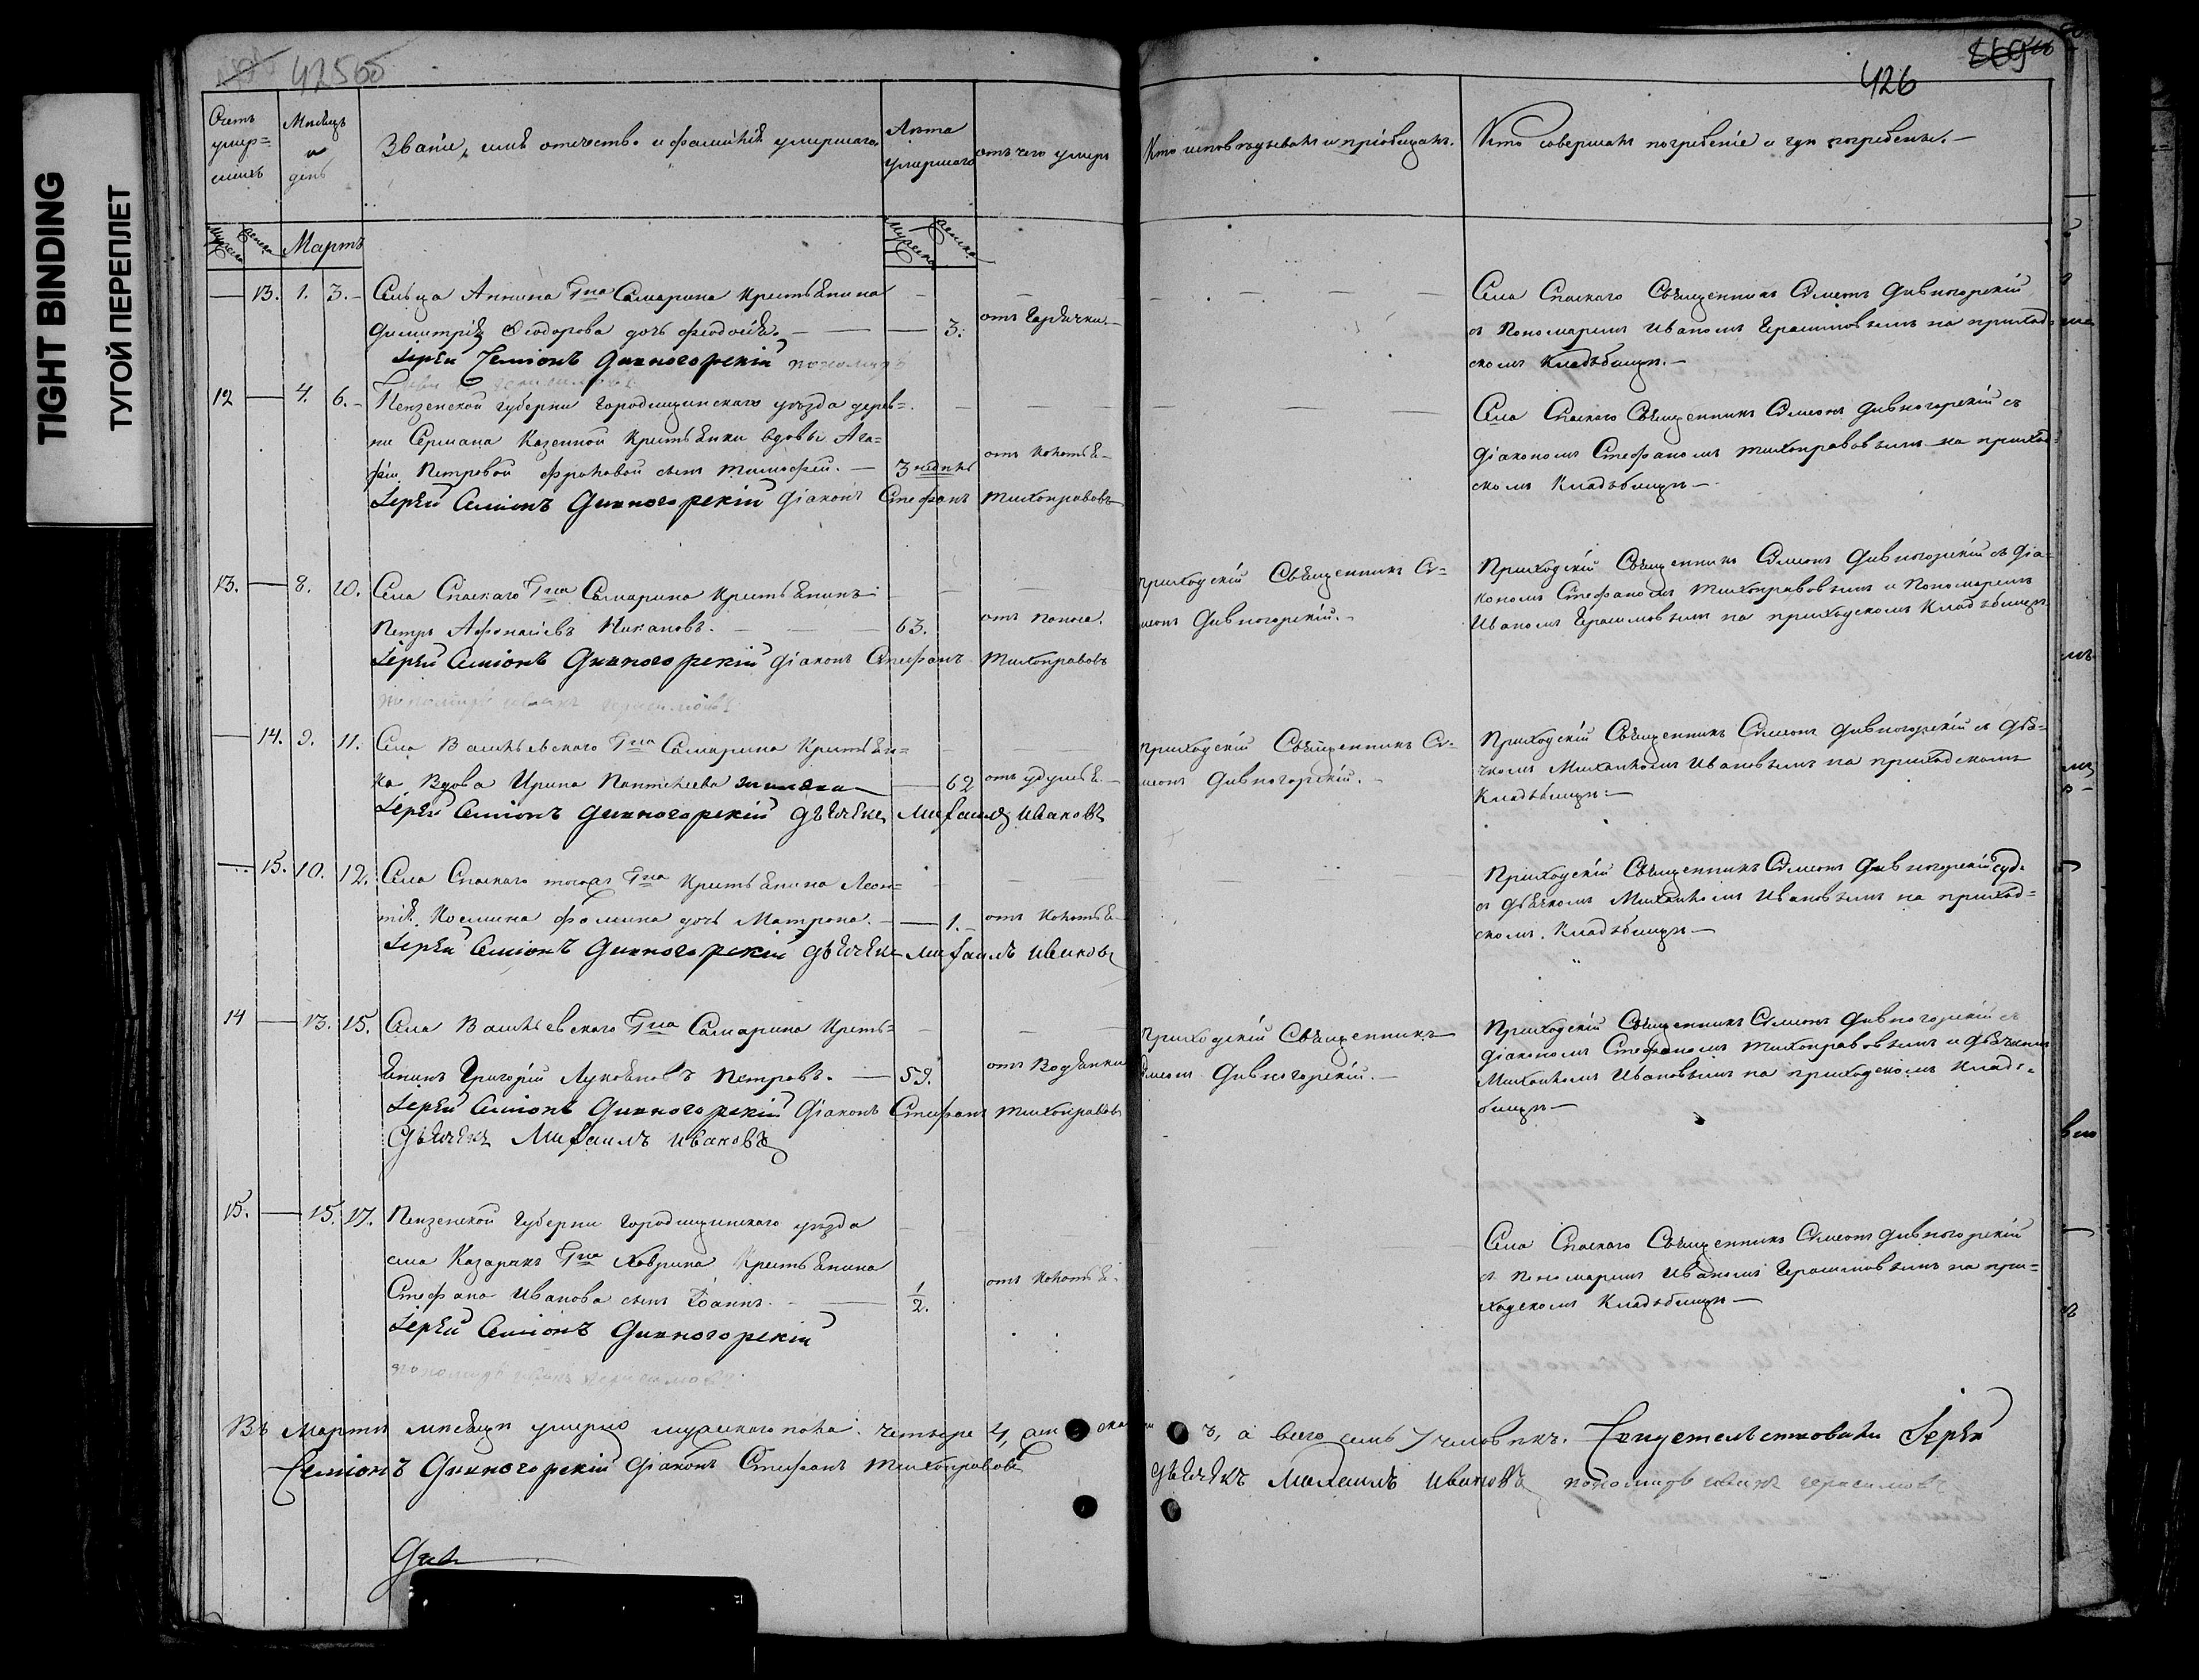 TIGHT BINDING
ТУГОЙ ПЕРЕПЛЕТ
425об
426
Счетъ умер=шихъ
Мѣсяцъ и день
Званіе, имя отчество и фамилія умершаго
Лѣта умершаго
отъ чего умеръ
Кто исповѣдывалъ и пріобщалъ.
Кто совершалъ погребеніе и гдѣ погребены.—
Мужска
Женска
Мартъ
Мужска
Женска
— 13. 1. 3. Сельца Аннина Гна Самарина Крестьянина
Димитрія Ѳеодорова дочь Феодосія. — — 3. отъ Горячки
Іерей Семіонъ Дивногорскій пономарь
Села Спаскаго Священникъ Сѵмеонъ Дивногорскій
съ Пономаремъ Иваномъ Герасимовымъ на приход=
скомъ Кладьбищѣ.—
12 — 4. 6. Пензенской Губерни Городищинскаго уѣзда дерев=
ни Сермана Казенной Крестьянки вдовы Ага=
фіи Петровой Фроловой сынъ Тимофей. — 3 недѣль отъ Колотья
Іерей Семіонъ Дивногорскій Діаконъ Стефанъ Тихонравовъ
Села Спаскаго Священникъ Сѵмеонъ Дивногорскій съ
Діакономъ Стефаномъ Тихонравовымъ на приход=
скомъ Кладьбищѣ—
13. — 8. 10. Села Спаскаго Гна Самарина Крестьянинъ
Петръ Афонасіевъ — 63. отъ поноса.
Іерей Семіонъ Дивногорскій Діаконъ Стефанъ Тихонравовъ
пономарь иванъ герасимовъ
приходскій Священникъ Сѵ=
меонъ Дивногорскій.—
Приходскій Священникъ Сѵмеонъ Дивногорскій съ Діа=
кономъ Стефаномъ Тихонравовымъ и Пономаремъ
Иваномъ Герасимовымъ на приходскомъ Кладьбищѣ
— 14. 9. 11. Села Васильевскаго Гна Самарина Крестьян=
ка Вдова Ирина Пантелеева — 62 отъ удушья
Іерей Семіонъ Дивногорскій дьячекъ Михаилъ Ивановъ
приходскій Священникъ Сѵ=
меонъ Дивногорскій.—
Приходскій Священникъ Сѵмеонъ Дивногорскій съ Дья=
чкомъ Михаиломъ Ивановымъ на приходскомъ
Кладьбищѣ—
— 15. 10. 12. Села Спаскаго тогожъ Гна Крестьянина Леон=
тія Космина Фомина дочь Матрона. — 1. отъ Колотья
Іерей Семіонъ Дивногорскій дьячекъ Михаилъ Ивановъ
Приходскій Священникъ Сѵмеонъ Дивногорскій
съ Дьячкомъ Михаиломъ Ивановымъ на приход=
скомъ Кладьбищѣ—
14 — 13. 15. Села Васильевскаго Гна Самарина Кресть=
янинъ Григорій Лукояновъ Петровъ. — 59. отъ Водянки
Іерей Семіонъ Дивногорскій Діаконъ Стефанъ Тихонравовъ
Дьячекъ Михаилъ Ивановъ
приходскій Священникъ
Сѵмеонъ Дивногорскій.—
Приходскій Священникъ Сѵмеонъ Дивногорскій съ
Діакономъ Стефаномъ Тихонравовымъ и Дьячкомъ
Михаиломъ Ивановымъ на приходскомъ Кладь=
бищѣ—
15. — 15. 17. Пензенской Губерни Городищинскаго уѣзда
села Казарки Гна Хаврина Крестьянина
Стефана Иванова сынъ Іоаннъ. — 1/2. отъ Колотья.
Іерей Семіонъ Дивногорскій
пономарь иванъ герасимовъ
Села Спаскаго Священникъ Сѵмеонъ Дивногорскій
съ Пономаремъ Иваномъ Герасимовымъ на при=
ходскомъ Кладьбищѣ—
Въ Мартѣ мѣсяцѣ умерло мужескаго пола четыре 4, 3, а всего семь 7 человѣкъ. Свидетельствовали Іерей
Семіонъ Дивногорскій Діаконъ Стефанъ Тихонравовъ Дьячекъ Михаилъ Ивановъ пономарь иванъ герасимовъ